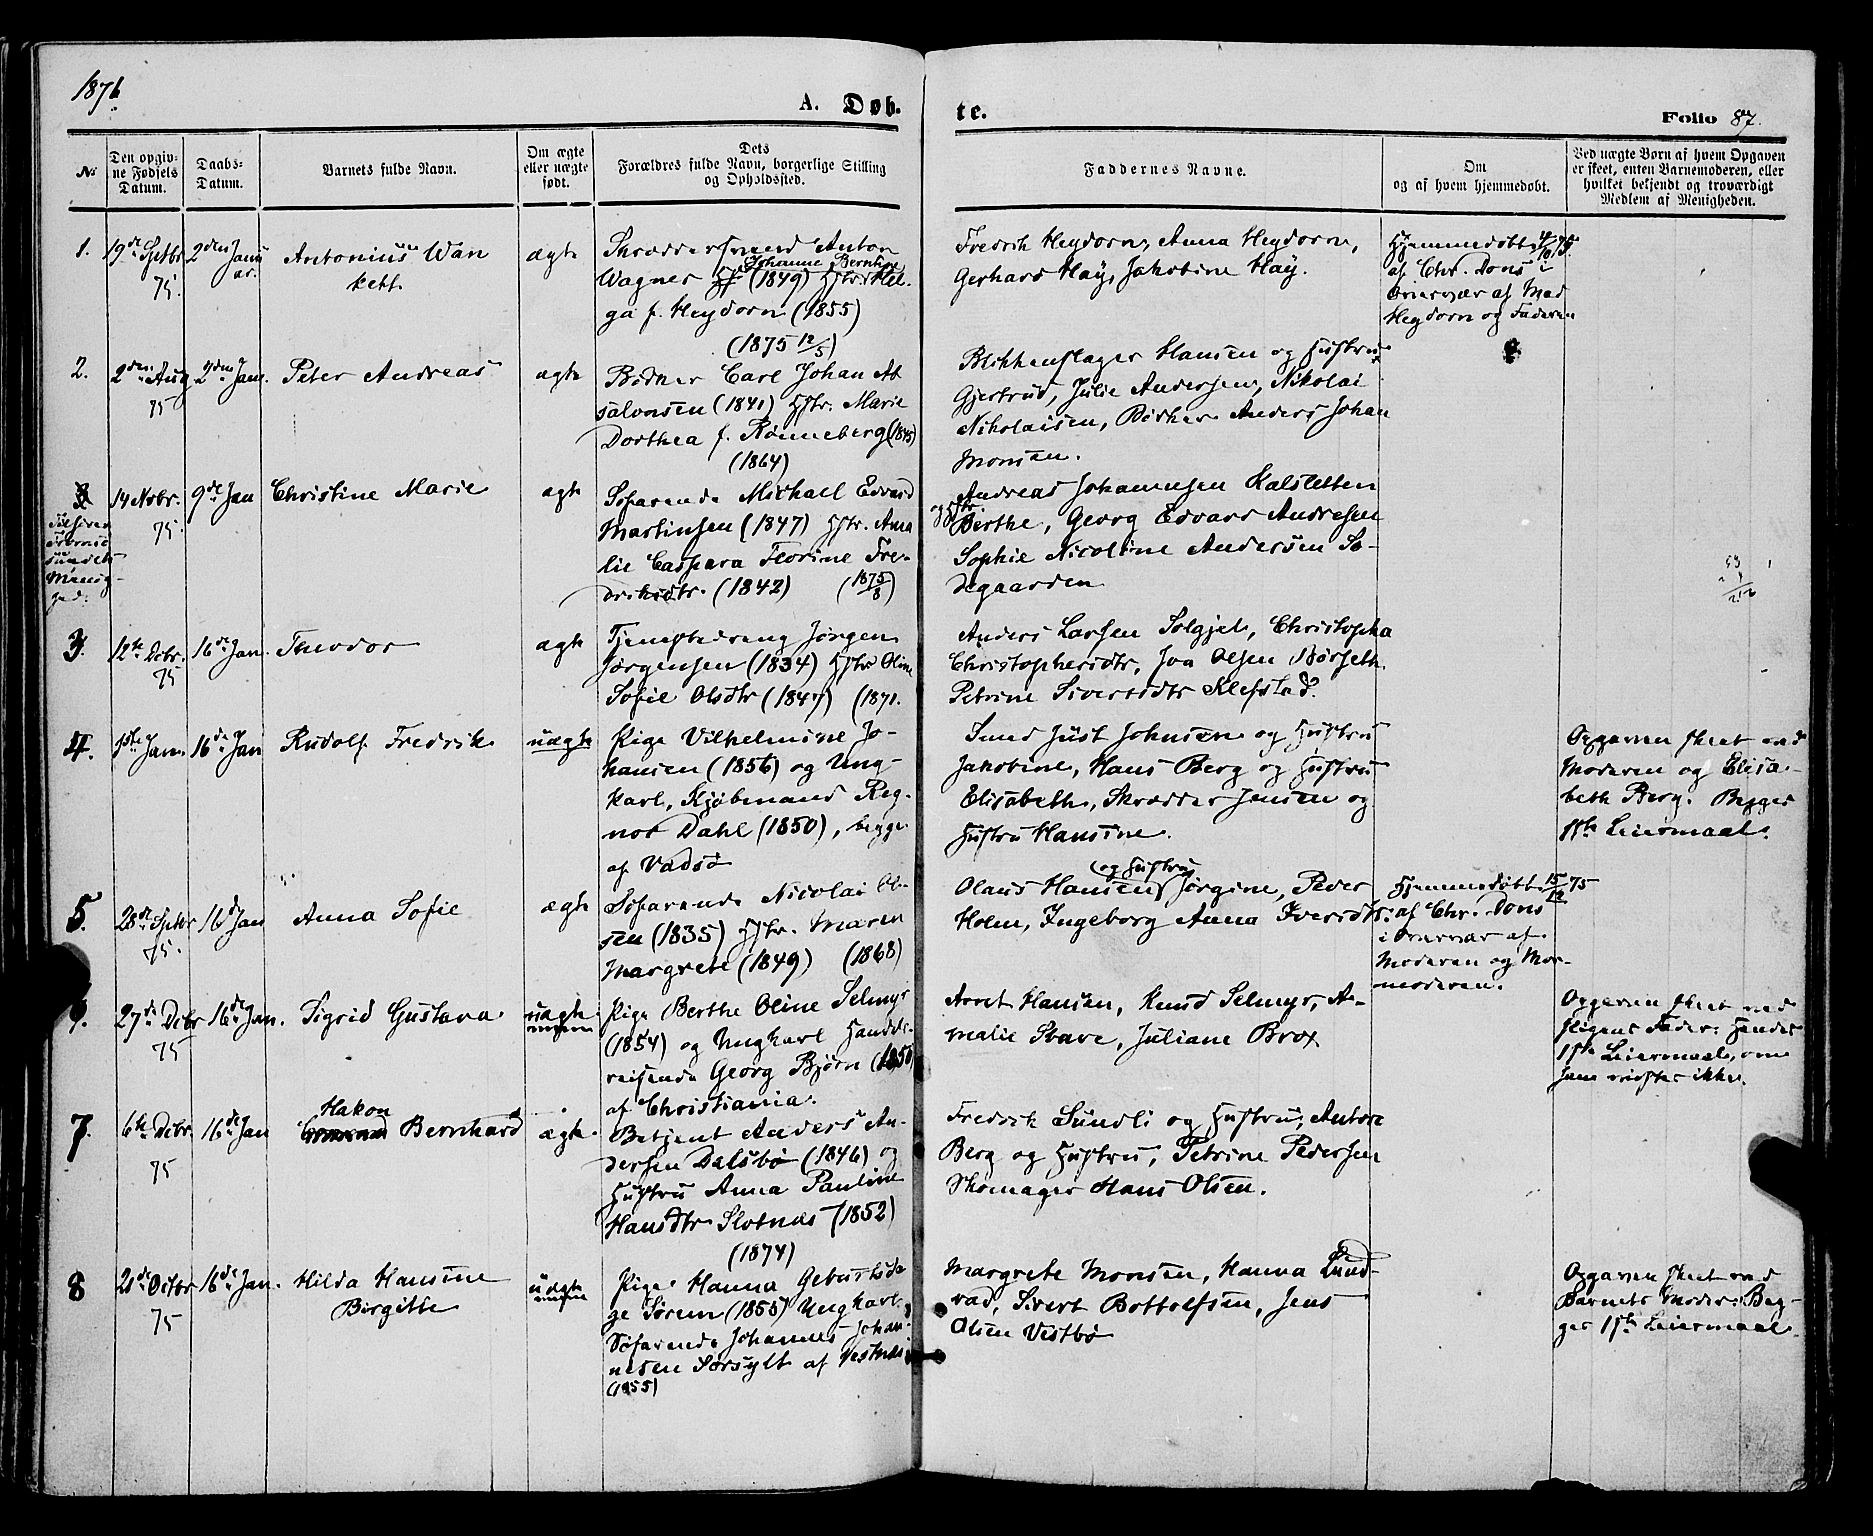 1876.
A. Døb.
te.
Folio 87.
No
Den opgiv-
ne Fødsels
Datum.
Daabs-
Datum.
Barnets fulde Navn.
Om ægte
eller uægte
født.
Dets
Forældres fulde Navn, borgerlige Stilling
og Opholdssted.
Faddernes Navne.
Om
og af hvem hjemmedøbt.
Ved uægte Børn af hvem Opgaven
er skeet, enten Barnemoderen, eller
hvilket bekjendt og troværdigt
Medlem af Menigheden.
1.
19de Septbr
75.
2den Janu
ar.
Antonius Wan
kett
ægte
Skræddersvend Anton
Johanne Bernhe
Wagner (1849) Hstr. Hel-
ga f. Heydorn (1855)
(1875 12/5)
Fredrik Heydorn, Anna Heydorn,
Gerhard Høy, Jakobine Høy.
Hjemmedøbt 4/10 75.
af Chr. Dons i
Overvær af Mad
Heydorn og Faderen
2.
2den Aug
75
2den Jan.
Peter Andreas
ægte
Bødker Carl Johan Ab
salonsen (1841) Hstr. Marie
Dorthea f. Rønneberg (1845)
(1864)
Blikkenslager Hansen og Hustru
Gjertrud, Julie Andersen, Nikolai
Nikolaisen, Bødker Anders Johan
Monsen.
14 Novbr.
75.
9de Jan
Christine Marie
ægte
sundets
Menig-
hed.
Søfarende Michael Edvard
Martinsen (1847) Hstr. Ama
lie Caspara Florine Fre-
driksdtr. (1842) (1875/8)
Andreas Johannesen Kalsletten
og Hstr. Berthe, Georg Edvard Andresen
Sophie Nicoline Andersen Sø-
degaarden
3.
12te Decbr.
75
16de Jan.
Theodor
ægte
Tjenestedreng Jørgen
Jørgensen (1834) Hstr Oline
Sofie Olsdtr (1847) (1871.
Anders Larsen Solgjel, Christopha
Christophersdtr, Joa Olsen Børseth
Petrine Sivertsdtr Klefstad.
4.
1ste Jan.
16de Jan
Rudolf Fredrik
uægte
Pige Vilhelmine Jo-
hansen (1856) og Ung-
karl, Kjøbmand Reg-
nor Dahl (1850), begge
af Vadsø
Smed Just Johnsen og Hustru
Jakobine, Hans Berg og Hustru
Elisabeth, Skrædder Jensen og
Hustru Hansine.
Opgaven skeet ved
Moderen og Elisa-
beth Berg. Begges
1ste Leiermaal.
5.
28de Septbr
75.
16de Jan
Anna Sofie
ægte
Søfarende Nicolai Ol-
sen (1835) Hstr. Maren
Margrete (1849) (1868)
og Hustru
Olaus Hansen, Jørgine, Peder
Holm, Ingeborg Anna Iversdtr.
Hjemmedøbt 15/12 75
af Chr. Dons
i Overvær af
Moderen og Mor-
moderen.
27de Decbr
75
16de Jan.
Sigrid Gustava
uægte
Pige Berthe Oline Selmys
(1854) og Ungkarl Handels-
reisende Georg Bjørn (1850)
af Christiania.
Arnt Hansen, Knud Selmys, A-
malie Stave, Juliane Brox
Opgaven skeet ved
Pigens Fader: Hendes
1ste Leiermaal, om
hans vidstes ikke.
7.
6te Decbr.
75
16de Jan
Hakon
Bernhard
ægte.
Betjent Anders An-
dersen Dalsbø (1846) og
Hustru Anna Pauline
Hansdtr Slotnæs (1852)
(1874)
Fredrik Sundli og Hustru, Anton
Berg og Hustru, Petrine Pedersen
Skomager Hans Olsen.
8
20de Octbr
75
16de Jan.
Hilda Hansine
Birgitte
uægte
Pige Hanna Geburtsda
ge Sørem (1855) Ungkarl
Søfarende Johannes Johan-
nesen Sørsylt af Vestnæs
(1855)
Margrete Monsen, Hanna Lund-
vad, Sivert Bottolfsen, Jens
Olsen Vestbø
Opgaven skeet ved
Barnets Moder: Beg-
ges 1ste Leiermaal.